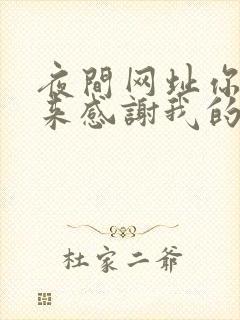 夜間网址你
来感謝我的
杜家二爷